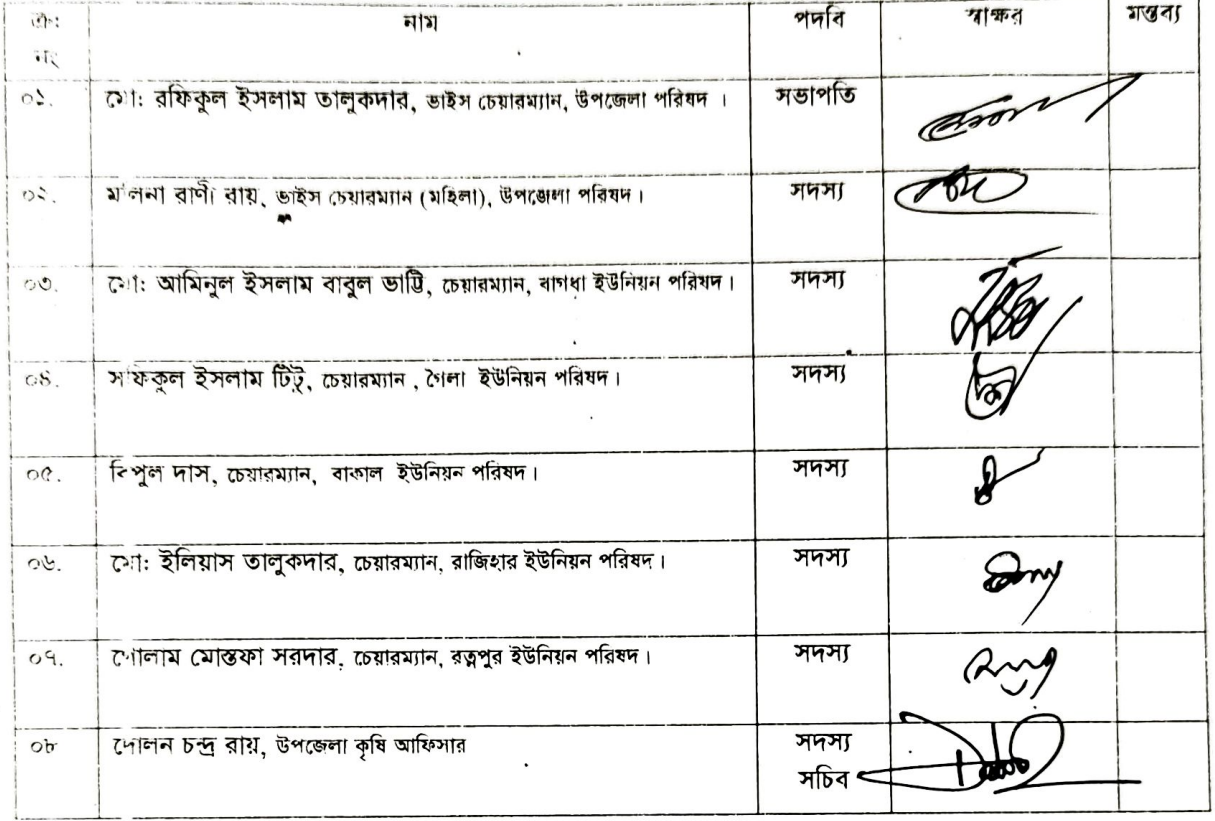 ক্র: নাম পদবি স্বাক্ষর মন্তব্য
নং
০১. মো: রফিকুল ইসলাম তালুকদার, ভাইস চেয়ারম্যান, উপজেলা পরিষদ । সভাপতি
০২. মলিনা রাণী রায়, ভাইস চেয়ারম্যান (মহিলা), উপজেলা পরিষদ । সদস্য
০৩. মো: আমিনুল ইসলাম বাবুল ভাট্টি, চেয়ারম্যান, বাগধা ইউনিয়ন পরিষদ । সদস্য
০৪. সফিকুল ইসলাম টিটু, চেয়ারম্যান , গৈলা ইউনিয়ন পরিষদ । সদস্য
০৫. বিপুল দাস, চেয়ারম্যান, বাকাল ইউনিয়ন পরিষদ । সদস্য
০৬. মো: ইলিয়াস তালুকদার, চেয়ারম্যান, রাজিহার ইউনিয়ন পরিষদ । সদস্য
০৭. গোলাম মোস্তফা সরদার, চেয়ারম্যান, রত্নপুর ইউনিয়ন পরিষদ । সদস্য
০৮ দোলন চন্দ্র রায়, উপজেলা কৃষি অফিসার সদস্য
সচিব